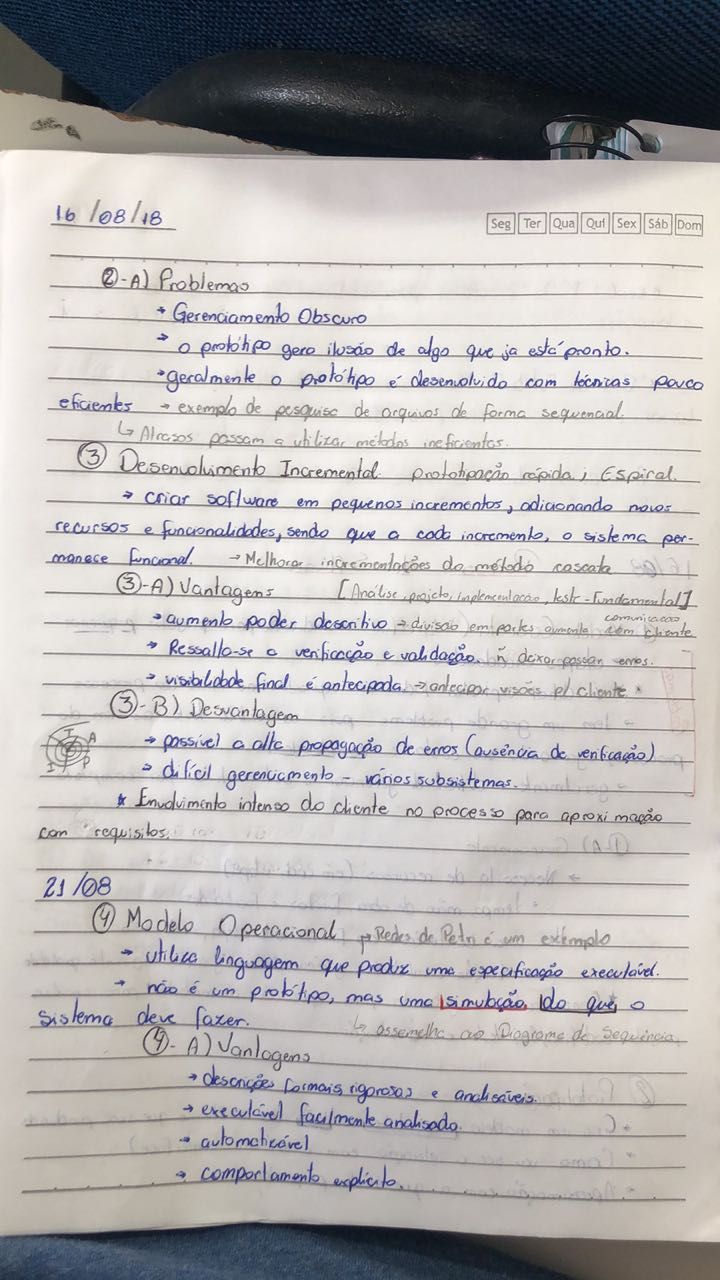 16/08/18
Seg Ter Qua Qui Sex Sáb Dom
②-A) Problemas
→ Gerenciamento Obscuro
→ o protótipo gera ilusão de algo que ja está pronto.
→ geralmente o protótipo é desenvolvido com técnicas pouco
eficientes → exemplo de pesquisa de arquivos de forma sequencial.
↳ Atrasos passam a utilizar métodos ineficientes.
③ Desenvolvimento Incremental prototipação rápida; Espiral.
→ criar software em pequenos incrementos, adicionando novos
recursos e funcionalidades, sendo que a cada incremento, o sistema per-
manece funcional. → Melhorar incrementações do método cascata
③-A) Vantagens [Análise, projeto, implementação, teste - Fundamental]
→ aumento poder descritivo → divisão em partes aumenta comunicacao com cliente
→ Ressalta-se a verificação e validação. ñ deixar passar erros.
→ visibilidade final é antecipada. → antecipar visões p/ cliente *
③-B) Desvantagem
I A
I P
→ possível a alta propagação de erros (ausência de verificação)
→ difícil gerenciamento - vários subsistemas.
* Envolvimento intenso do cliente no processo para aproximação
com requisitos.
21/08
④ Modelo Operacional → Redes de Petri é um exemplo
→ utiliza linguagem que produz uma especificação executável.
→ não é um protótipo, mas uma simulação do que o
sistema deve fazer. ↳ assemelha ao Diagrama de Sequência.
④-A) Vantagens
→ descrições formais, rigorosas e analisáveis.
→ executável facilmente analisado.
→ automatizável
→ comportamento explícito.